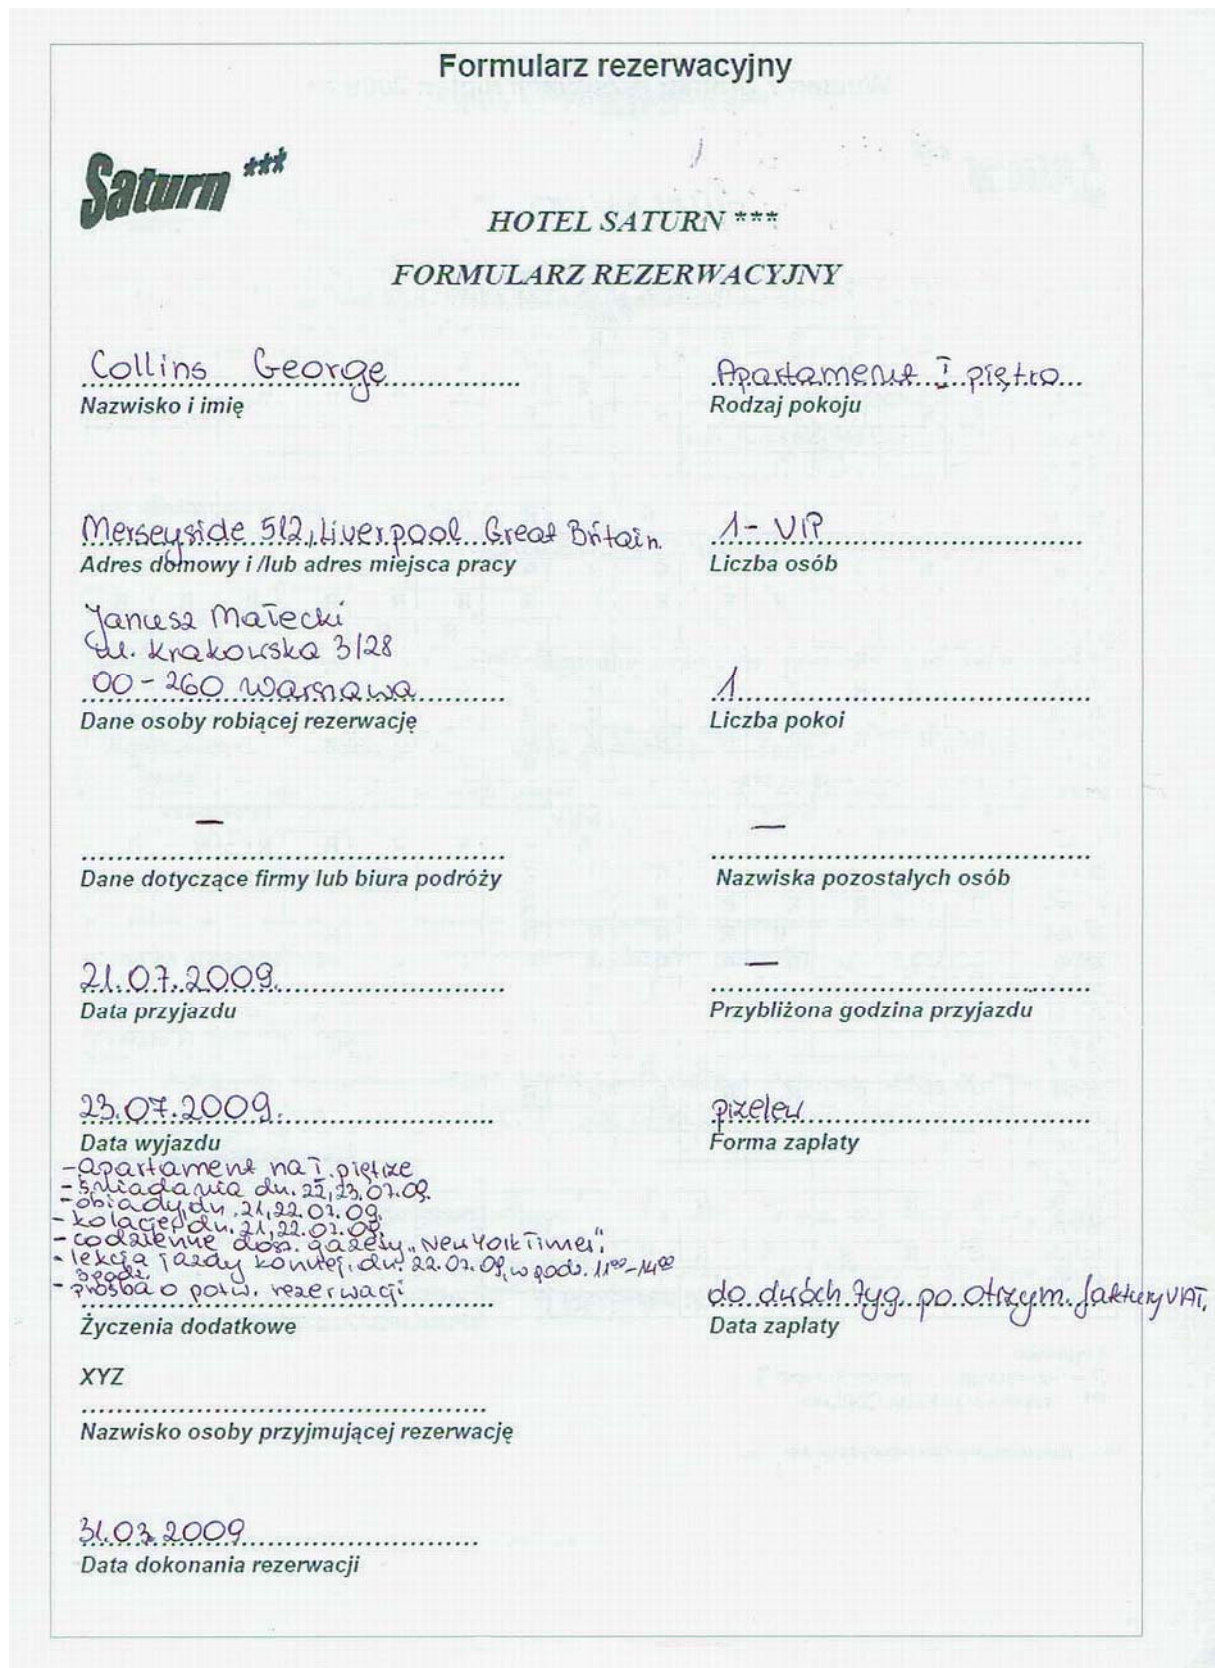 Formularz rezerwacyjny
Saturn ***
HOTEL SATURN ***
FORMULARZ REZERWACYJNY
Collins George
Nazwisko i imię
Apartament I piętro
Rodzaj pokoju
Merseyside 512, Liverpool Great Britain.
Adres domowy i /lub adres miejsca pracy
1 - VIP
Liczba osób
Janusz Małecki
ul. Krakowska 3/28
00-260 Warszawa
Dane osoby robiącej rezerwację
1
Liczba pokoi
—
Dane dotyczące firmy lub biura podróży
—
Nazwiska pozostałych osób
21.07.2009.
Data przyjazdu
—
Przybliżona godzina przyjazdu
23.07.2009.
Data wyjazdu
przelew
Forma zapłaty
- apartament na I piętrze
- śniadania dn. 22,23.07.09.
- obiady dn. 21,22.07.09.
- kolacje dn. 21,22.07.09.
- codziennie dost. gazety „New York Times”.
- lekcja jazdy konnej dn. 22.07.09, w godz. 11⁰⁰-14⁰⁰
- prośba o potw. rezerwacji
Życzenia dodatkowe
do dwóch tyg. po otrzym. faktury VAT.
Data zapłaty
XYZ
Nazwisko osoby przyjmującej rezerwację
31.03.2009
Data dokonania rezerwacji